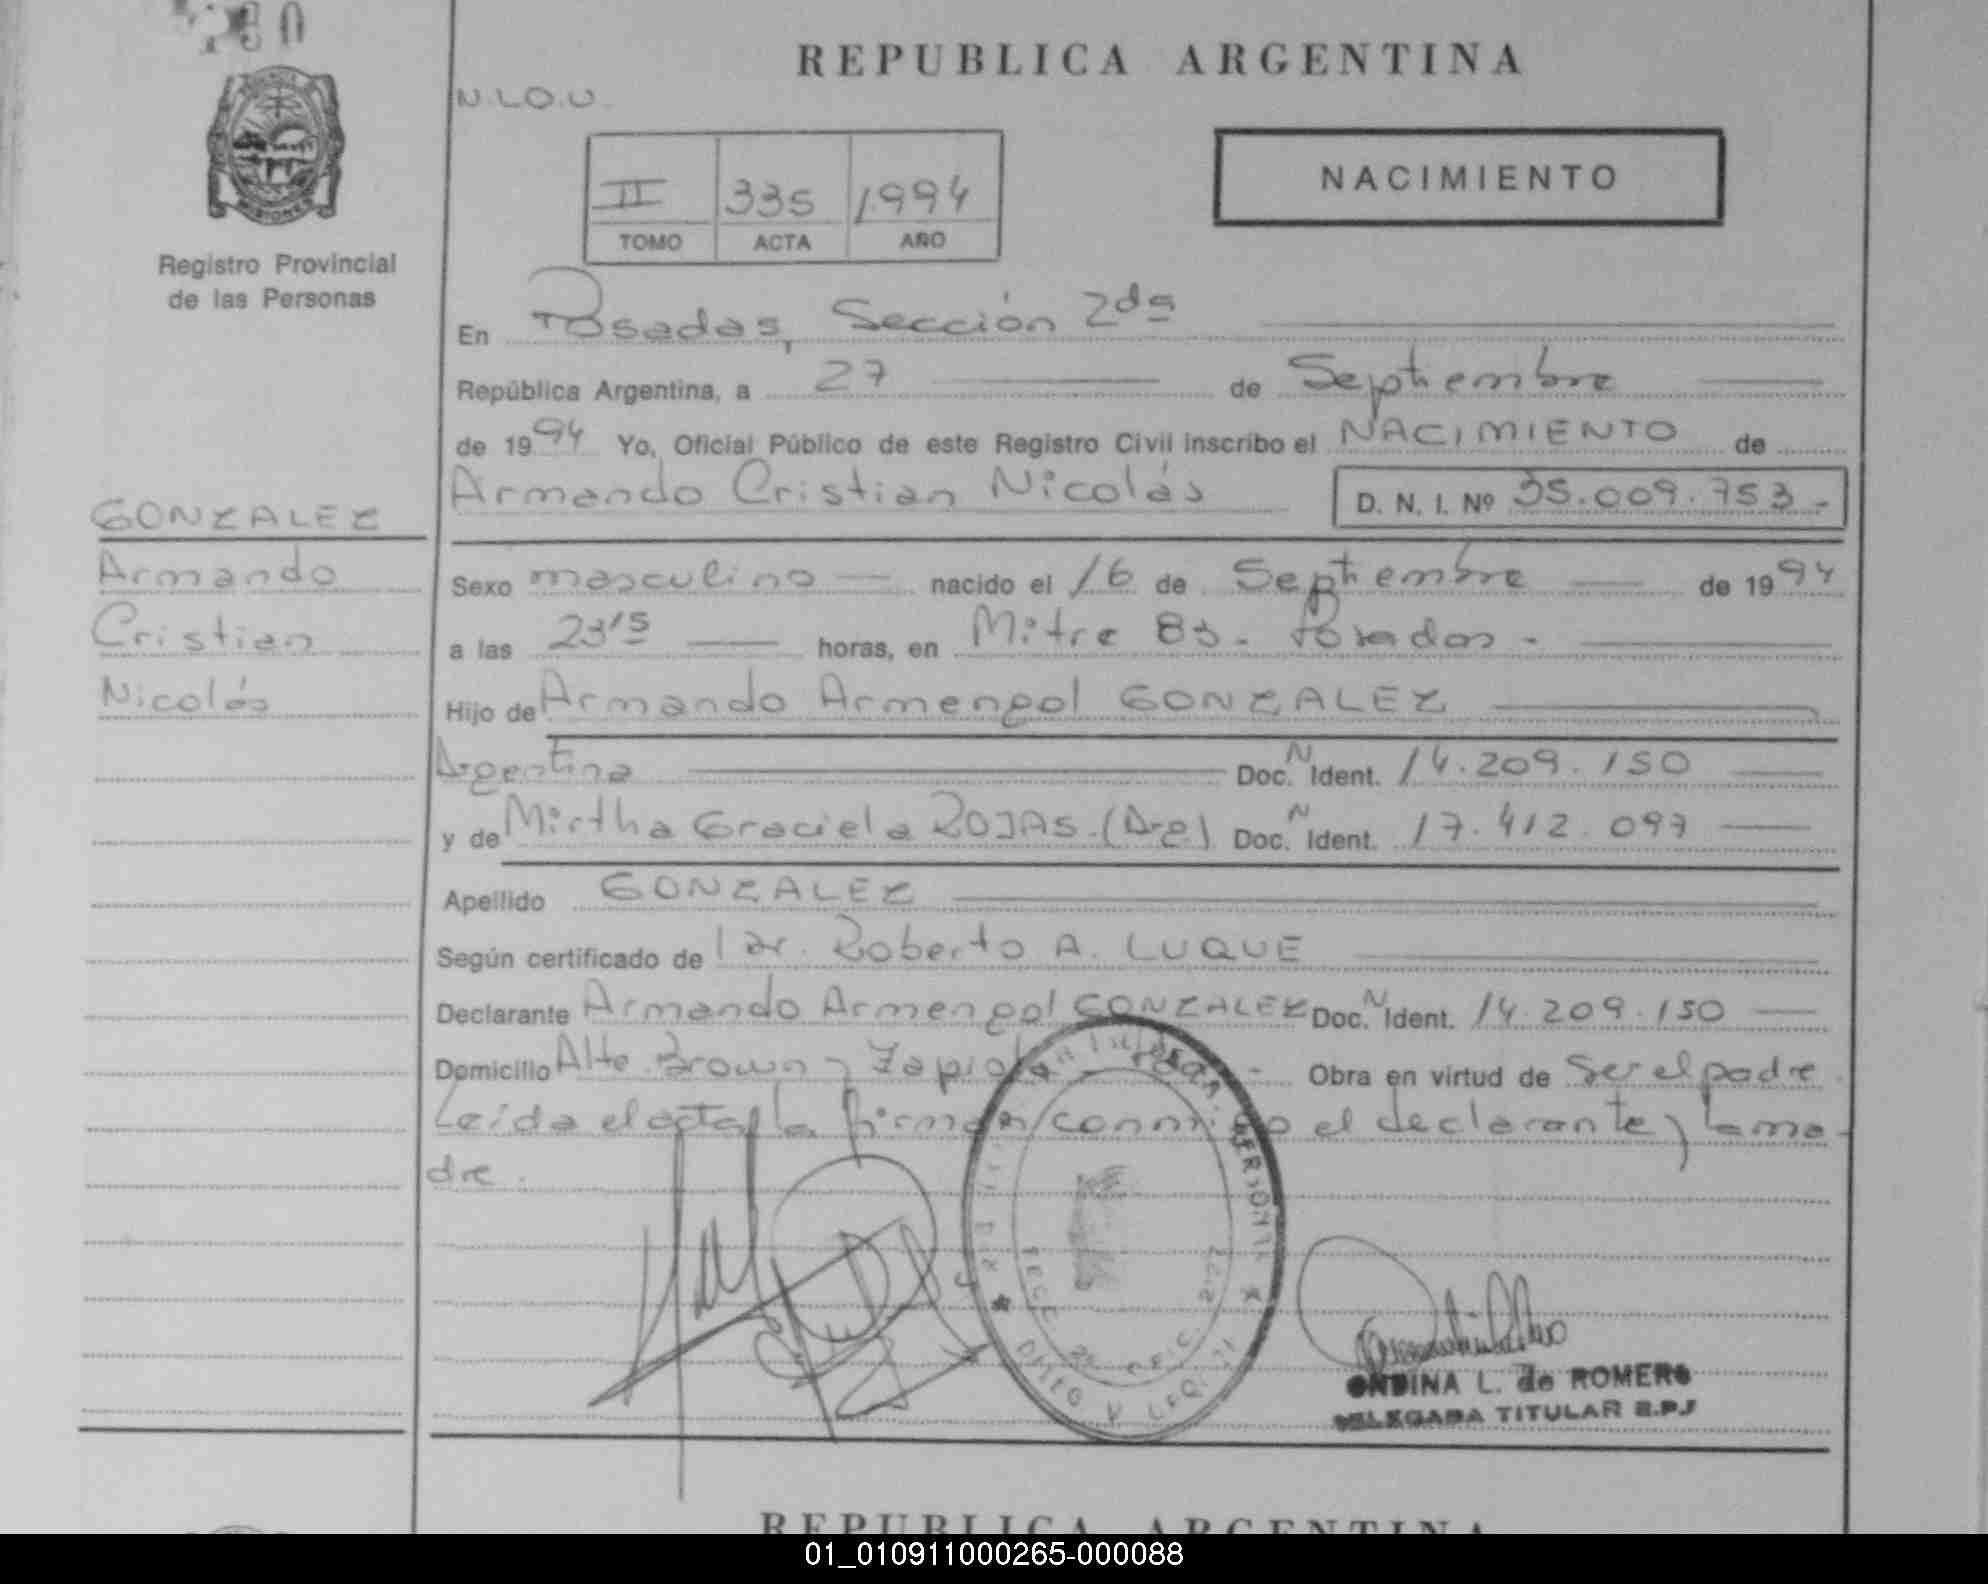 REPUBLICA ARGENTINA
N.L.O.U.
NACIMIENTO
II 335 1994
TOMO ACTA AÑO
MISIONES
Registro Provincial
de las Personas
En Posadas, Sección 2da
República Argentina, a 27 de Septiembre
de 1994 Yo, Oficial Público de este Registro Civil inscribo el NACIMIENTO de
Armando Cristian Nicolás D. N. I. Nº 35.009.753.-
GONZALEZ
Armando
Cristian
Nicolás
Sexo masculino nacido el 16 de Septiembre de 1994
a las 23 15 horas, en Mitre 83. Posadas -
Hijo de Armando Armengol GONZALEZ
Argentina Doc. N Ident. 14.209.150
y de Mirtha Graciela ROJAS. (Arg) Doc. N Ident. 17.412.097
Apellido GONZALEZ
Según certificado de l dr. Roberto A. LUQUE
Declarante Armando Armengol GONZALEZ Doc. N Ident. 14.209.150
Domicilio Alte. Brown y Zapiola - Obra en virtud de Ser el padre.
Leída el acta, la firman conmigo el declarante y la ma-
dre.
ONDINA L. de ROMERO
DELEGADA TITULAR R.P.J
REPUBLICA ARGENTINA
01_010911000265-000088